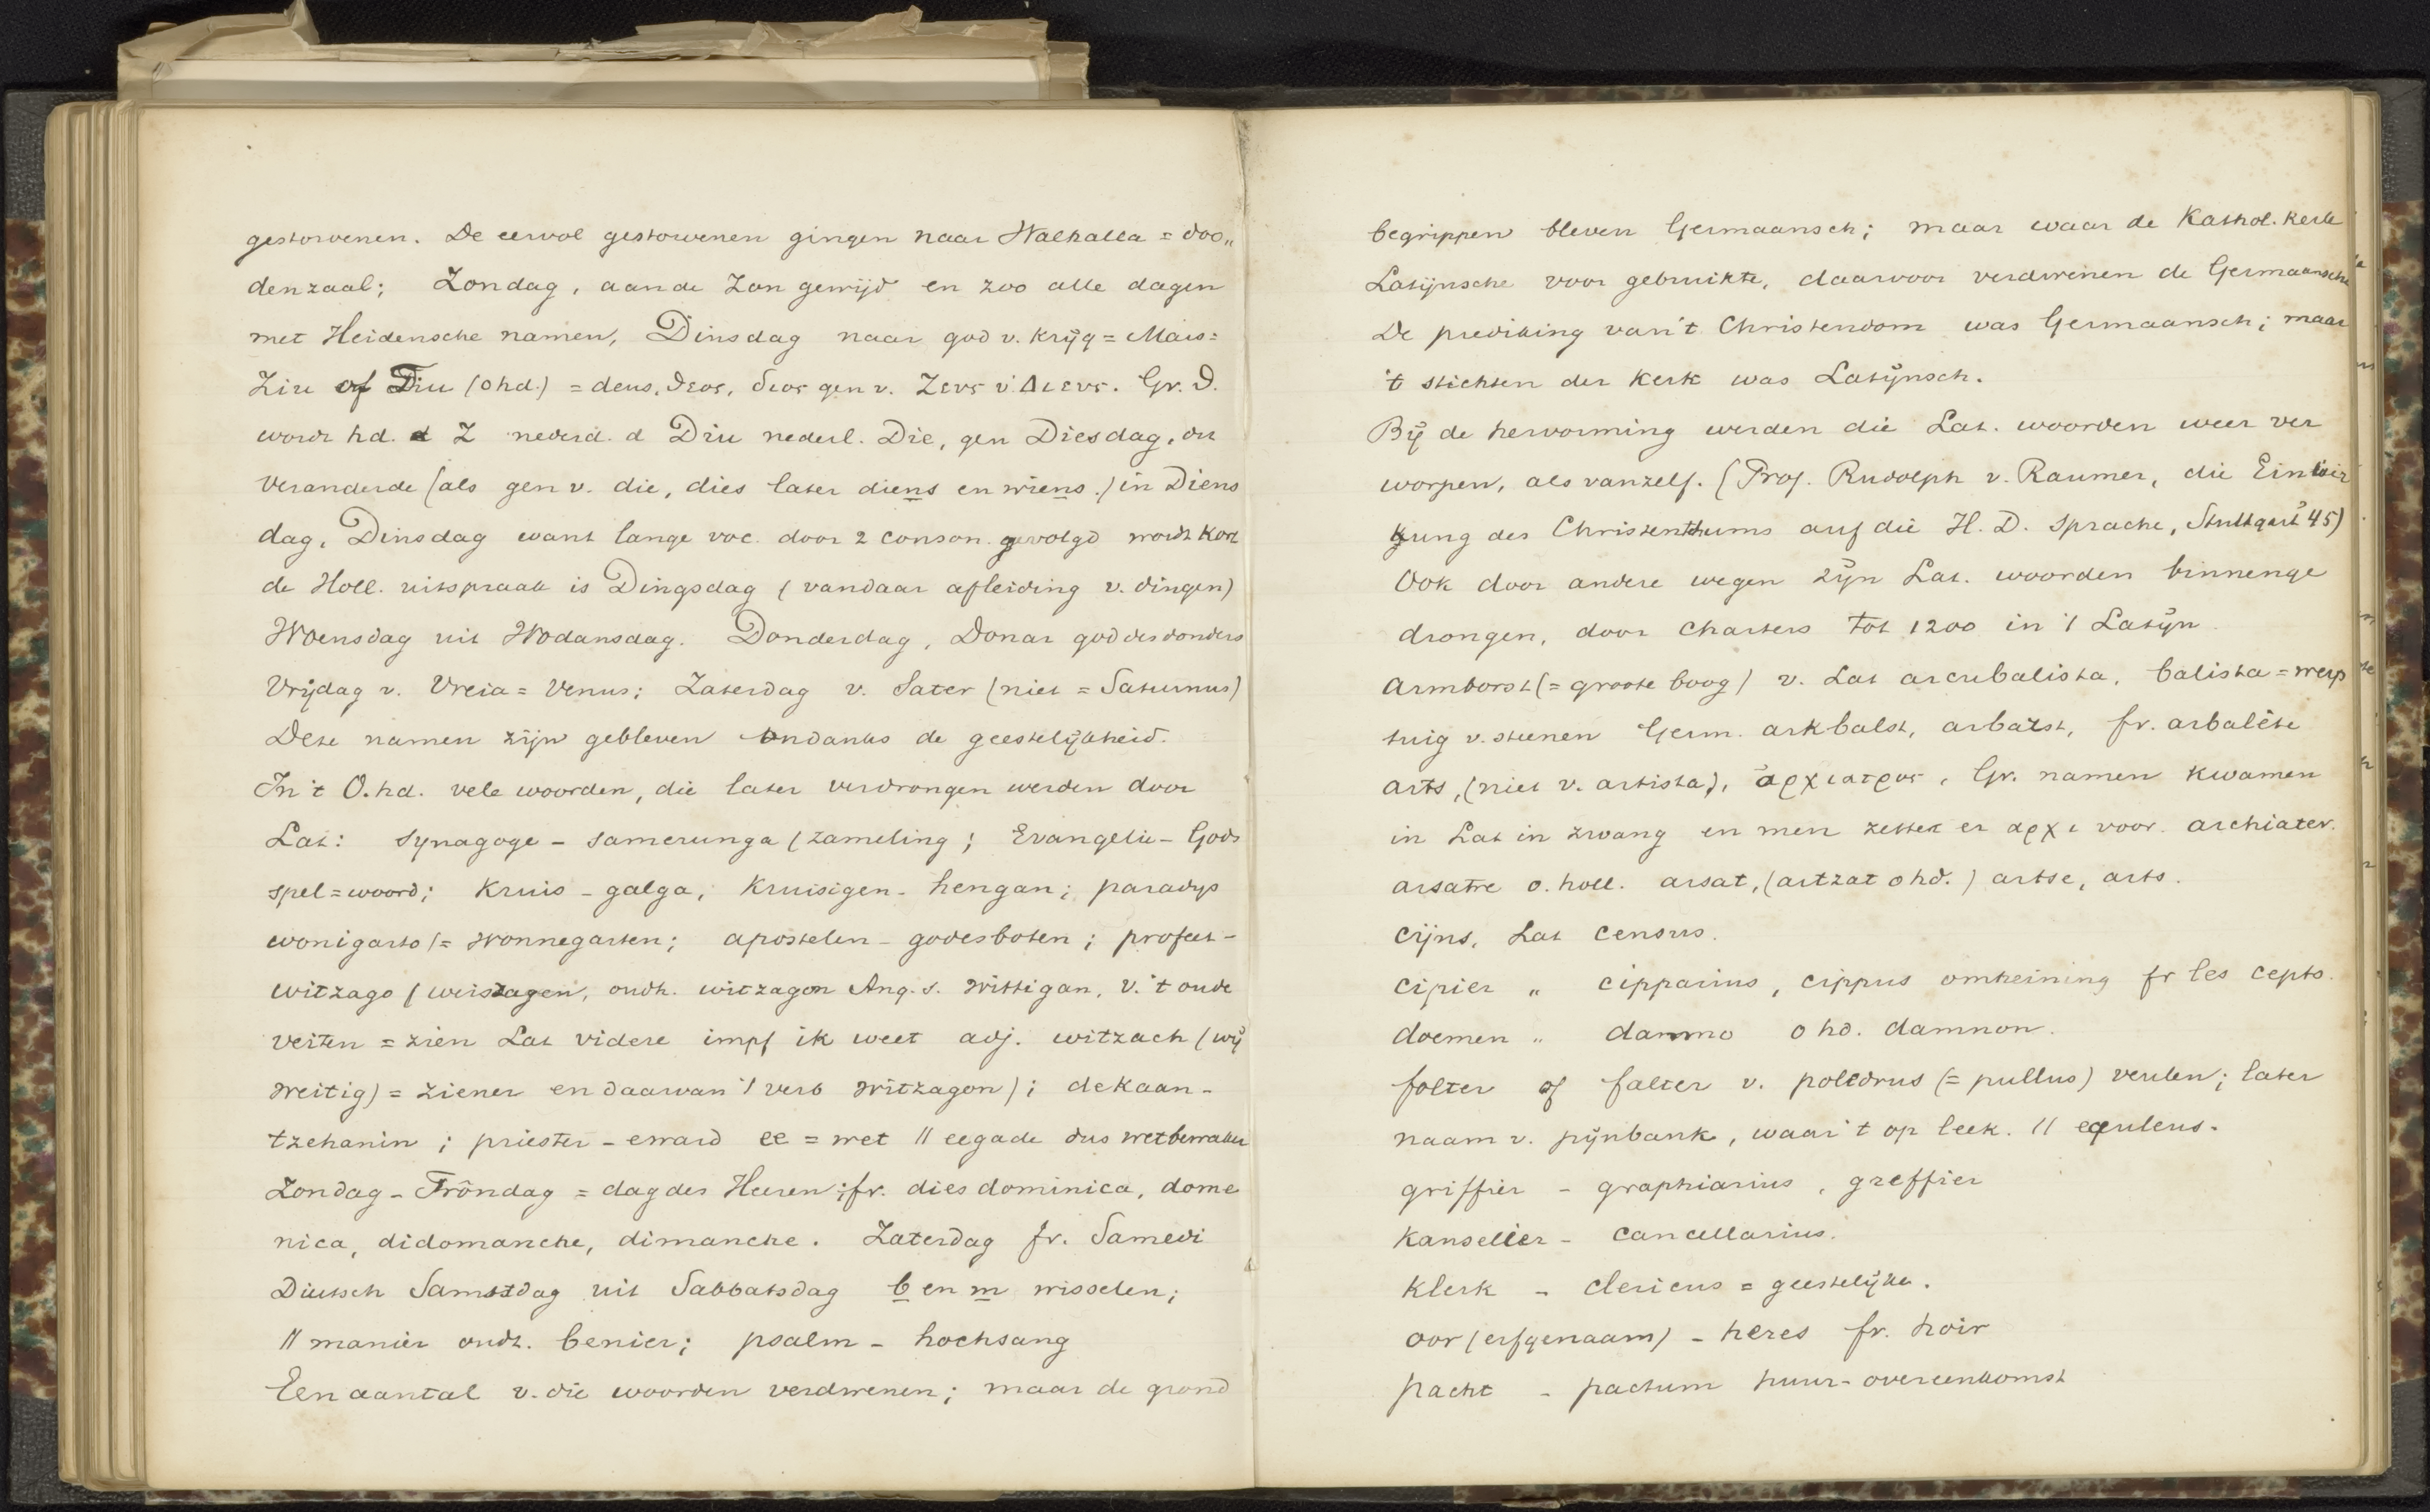 gestorvenen. De eervol gestorvenen gingen naar Walhalla = doo„
denzaal; Zondag, aan de Zon gewijd en zoo alle dagen
met Heidensche namen, Dinsdag naar god v. krijg = Mars:
Ziu of Diu (ohd.) = deus, θεος, διος gen v. Ζευς v. Διευς. Gr. D.
wordt hd. Z nederd. d Diu nederl. Die, gen Diesdag, dit
veranderde (als gen v. die, dies later diens en wiens.) in Diens
dag, Dinsdag want lange voc. door 2 conson. gevolgd wordt kort
de Holl. uitspraak is Dingsdag (vandaar afleiding v. dingen)
Woensdag uit Wodansdag. Donderdag, Donar god des donders
Vrijdag v. Vreia = Venus; Zaterdag v. Sater (niet = Saturnus)
Deze namen zijn gebleven ondanks de geestelijkheid.
In 't O.hd. vele woorden, die later verdrongen werden door
Lat: synagoge - samerunga (zameling; Evangelie - Gods
spel = woord; Kruis - galga, Kruisigen - hengan; paradys
wonigarto (= Wonnegarten; apostelen - godesboten; profeet -
witzago (weiszagen, oudh. witzagon Ang. s. Wittigan, v. 't oude
veiten = zien Lat videre impf ik weet adj. witzach (wij
weitig) = ziener en daarvan 't verb witzagon); dekaan -
tzehanin; priester - eward ee = wet // eegade dus wetbewaker
Zondag - Frôndag = dag des Heeren; fr. dies dominica, dome
nica, didomanche, dimanche. Zaterdag fr. Samedi
Duitsch Samstdag uit Sabbatsdag b en m wisselen;
// manier oudt. benier; psalm - hochsang
Een aantal v. die woorden verdwenen; maar de grond
begrippen bleven Germaansch; maar waar de Kathol. kerk
Latijnsche voor gebruikte, daarvoor verdwenen de Germaansche
De prediking van 't Christendom was Germaansch; maar
't stichten der Kerk was Latijnsch.
Bij de hervorming werden die Lat. woorden weer ver
worpen, als vanzelf. (Prof. Rudolph v. Raumer, die Einwir
kung des Christenthums auf die H. D. Sprache, Stuttgart 45)
Ook door andere wegen zijn Lat. woorden binnenge
drongen, door Charters tot 1200 in 't Latijn.
Armborst (= groote boog) v. Lat arcubalista, balista = werp
tuig v. steenen Germ. arkbalst, arbalst, fr. arbalète
arts, (niet v. artista), αρχιατρος, Gr. namen kwamen
in Lat in zwang en men zettet er αρχι voor. archiater.
arsatre o. holl. arsat, (artzat ohd.) artse, arts.
Cijns, Lat census.
Cipier „ cipparius, cippus omheining fr les cepts.
doemen „ damno ohd. damnon.
folter of falter v. poledrus (= pullus) veulen; later
naam v. pijnbank, waar 't op leek. // equleus.
griffier - graphiarius, greffier
Kanselier - cancellarius.
Klerk - clericus = geestelijke.
oor (erfgenaam) - heres fr. hoir
pacht - pactum huur-overeenkomst